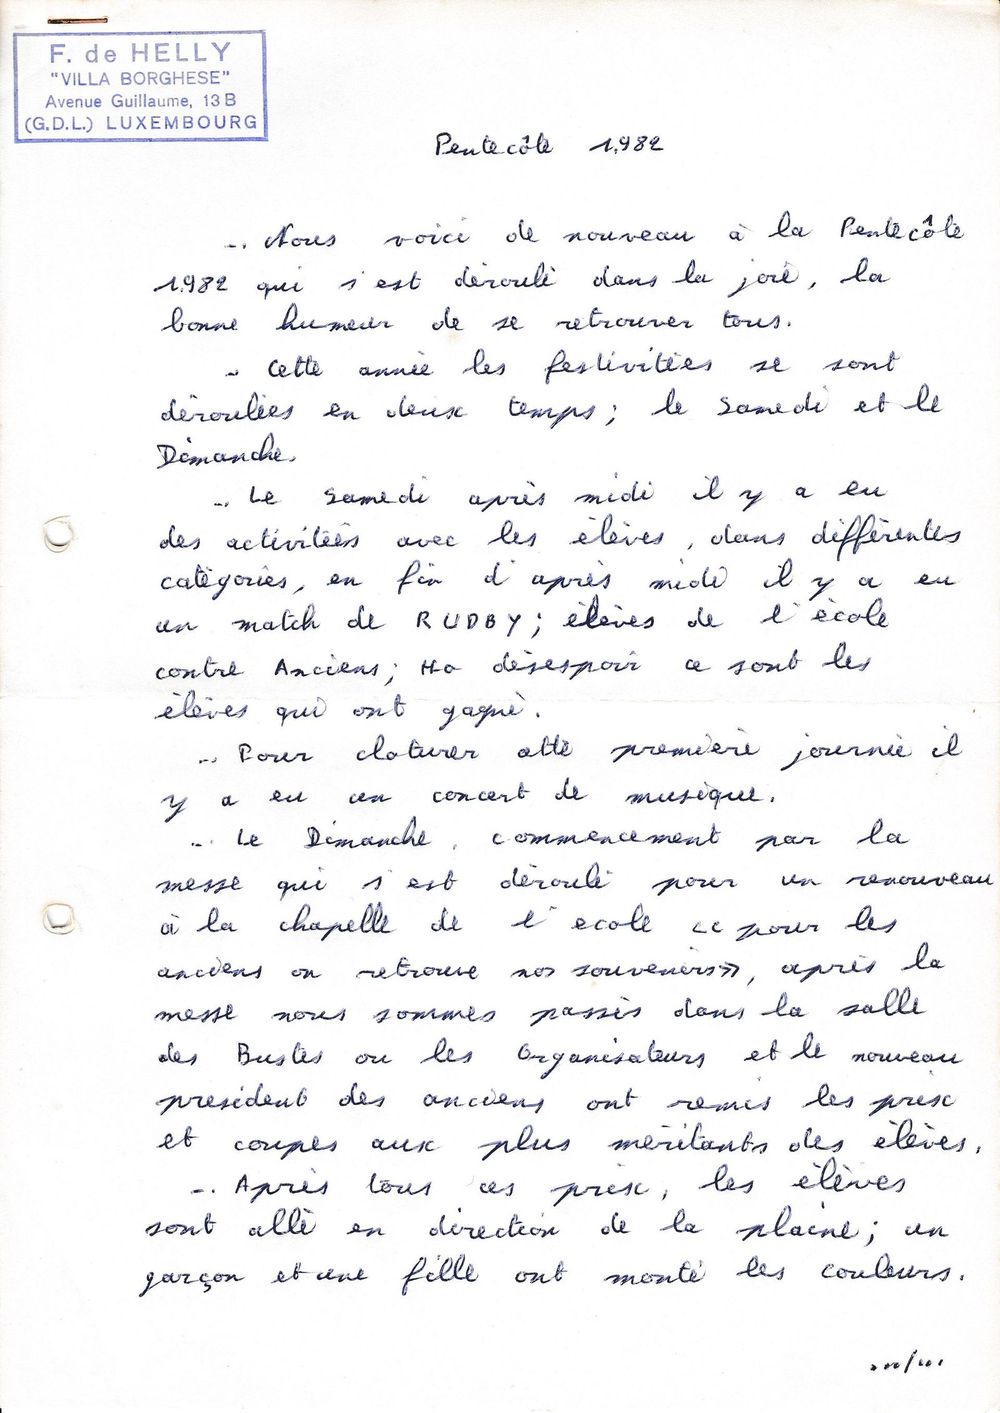 F. de HELLY
"VILLA BORGHESE"
Avenue Guillaume, 13 B
(G.D.L.) LUXEMBOURG
Pentecôte 1982
-. Nous voici de nouveau à la Pentecôte
1982 qui s'est déroulé dans la joie, la
bonne humeur de se retrouver tous.
-. Cette année les festivitées se sont
déroulées en deux temps; le Samedi et le
Dimanche.
-. Le Samedi après midi il y a eu
des activitées avec les élèves, dans différentes
catégories, en fin d'après midi il y a eu
un match de RUDBY; élèves de l'école
contre Anciens; Ho désespoir ce sont les
élèves qui ont gagné.
-. Pour cloturer cette première journée il
y a eu un concert de musique.
-. Le Dimanche, commencement par la
messe qui s'est déroulé pour un renouveau
à la chapelle de l'ecole << pour les
anciens on retrouve nos souvenirs>>, après la
messe nous sommes passés dans la salle
des Bustes ou les Organisateurs et le nouveau
president des anciens ont remis les prix
et coupes aux plus méritants des élèves.
-. Après tous ces prix, les élèves
sont allé en direction de la plaine; un
garçon et une fille ont monté les couleurs.
.../...